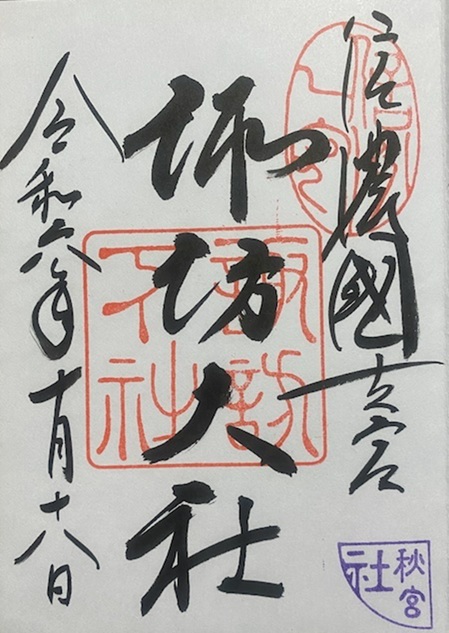 信濃國一之宮
諏訪大社
令和六年十月十八日
諏訪
大社
秋宮
社